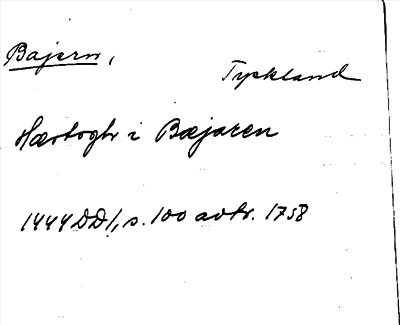 Bajern,
Tyskland
Hærtogh i Bæjaren
1444 DD1, s. 100 avtr. 1758